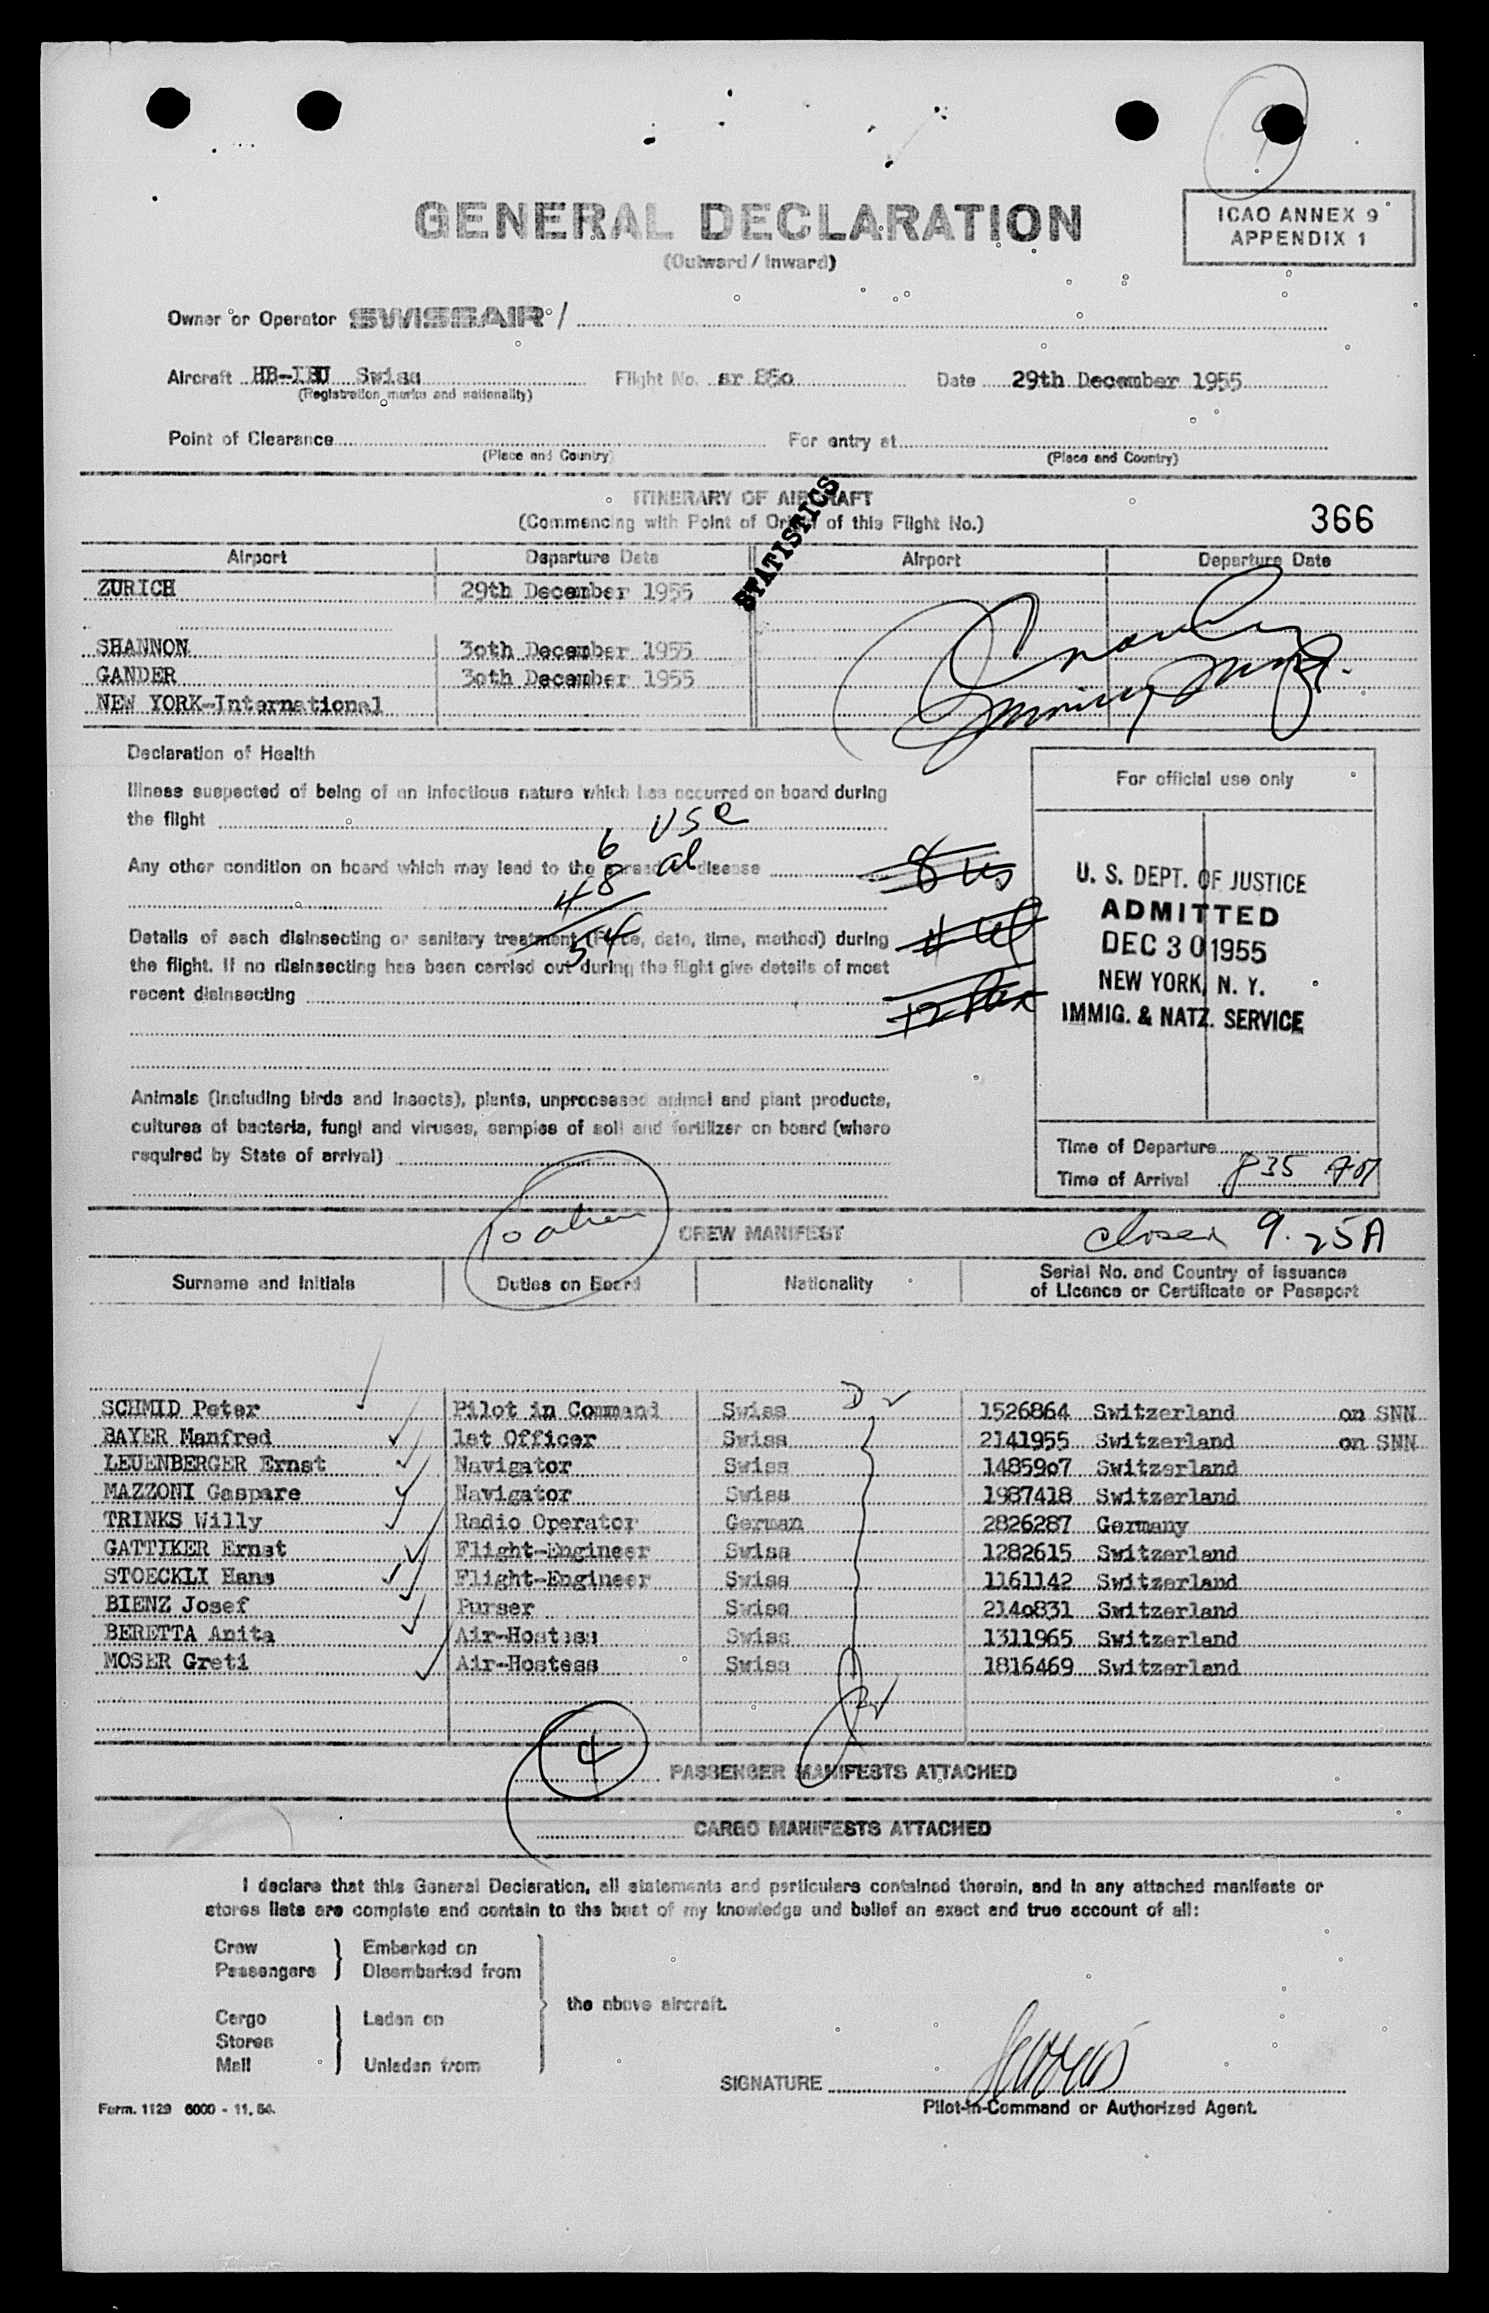 9
GENERAL DECLARATION
(Outward / Inward)
ICAO ANNEX 9
APPENDIX 1
Owner or Operator SWISSAIR /
Aircraft Swiss Flight No. sr 85o Date 29th December 1955
(Registration marks and nationality)
Point of Clearance For entry at
(Place and Country) (Place and Country)
STATISTICS
ITINERARY OF AIRCRAFT
(Commencing with Point of Origin of this Flight No.)
366
Airport Departure Date Airport Departure Date
ZURICH 29th December 1955
SHANNON 3oth December 1955
GANDER 3oth December 1955
NEW YORK-International
Declaration of Health
Illness suspected of being of an infectious nature which has occurred on board during
the flight
6 USC
Any other condition on board which may lead to the spread of disease
48 al
8 us
54
Details of each disinsecting or sanitary treatment (Place, date, time, method) during
the flight. If no disinsecting has been carried out during the flight give details of most
recent disinsecting
Animals (including birds and insects), plants, unprocessed animal and plant products,
cultures of bacteria, fungi and viruses, samples of soil and fertilizer on board (where
required by State of arrival)
For official use only
U. S. DEPT. OF JUSTICE
ADMITTED
DEC 30 1955
NEW YORK, N. Y.
IMMIG. & NATZ. SERVICE
Time of Departure
Time of Arrival 835 AM
10 alien
CREW MANIFEST
closed 9.25A
Surname and Initials Duties on Board Nationality Serial No. and Country of Issuance
of Licence or Certificate or Passport
SCHMID Peter Pilot in Command Swiss 1526864 Switzerland on SNN
BAYER Manfred 1st Officer Swiss 2141955 Switzerland on SNN
LEUENBERGER Ernst Navigator Swiss 14859o7 Switzerland
MAZZONI Gaspare Navigator Swiss 1987418 Switzerland
TRINKS Willy Radio Operator German 2826287 Germany
GATTIKER Ernst Flight-Engineer Swiss 1282615 Switzerland
STOECKLI Hans Flight-Engineer Swiss 1161142 Switzerland
BIENZ Josef Purser Swiss 214o831 Switzerland
BERETTA Anita Air-Hostess Swiss 1311965 Switzerland
MOSER Greti Air-Hostess Swiss 1816469 Switzerland
4 PASSENGER MANIFESTS ATTACHED
CARGO MANIFESTS ATTACHED
I declare that this General Declaration, all statements and particulars contained therein, and in any attached manifests or
stores lists are complete and contain to the best of my knowledge and belief an exact and true account of all:
Crew Embarked on
Passengers Disembarked from
the above aircraft.
Cargo Laden on
Stores
Mail Unladen from
SIGNATURE
Pilot-in-Command or Authorized Agent.
Form. 1129 6000 - 11. 54.